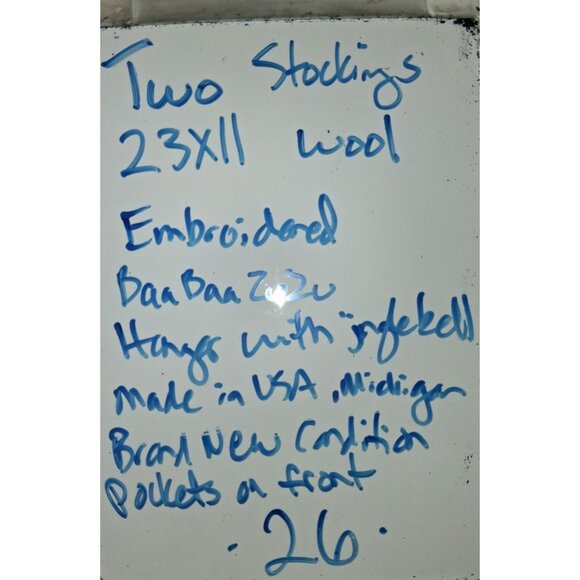 Two Stockings
23X11 Wool
Embroidered
BaaBaaZuZu
Hanger with "jinglebell
made in USA, Michigan
Brand New Condition
Pockets on front
. 26 .